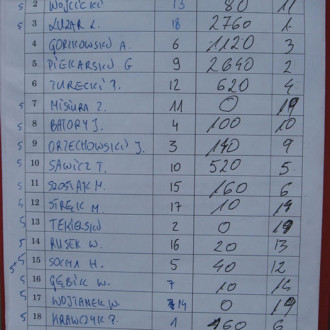 5 2 WOJCICKI 13 80 11
5 3 ŁUZAR Ł. 18 2760 1
4 GORIKOWSKI A. 6 1120 3
5 5 PIEKARSKI G 9 2640 2
6 TURECKI P. 12 620 4
5 7 MISIURA Z. 11 0 19
5 8 BATORY J. 4 100 10
5 9 ORZECHOWSKI J. 3 140 9
5 10 SAWICZ T. 10 520 5
5 11 SZOSTAK M. 15 160 6
5 12 STRĘK M. 17 10 19
5 13 2 0 19
5 14 RUSEK W. 16 20 13
5 15 SOCHA H. 5 40 12
5 16 GĘBIK W. 7 10 14
5 17 WOJTANEK W. 14 0 19
5 18 KRAWCZYK P. 1 460 6